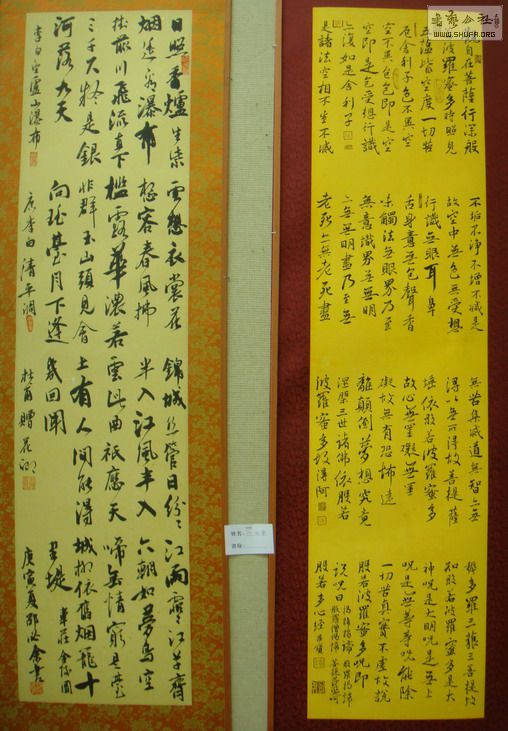 觀自在菩薩行深般
若波羅蜜多時照見
五蘊皆空度一切苦
厄舍利子色不異空
空不異色色即是空
空即是色受想行識
亦復如是舍利子
是諸法空相不生不滅
不垢不净不增不減是
故空中無色無受想
行識無眼耳鼻
舌身意無色聲香
味觸法無眼界乃至
無意識界無無明
亦無無明盡乃至無
老死亦無老死盡
無苦集滅道無智亦無
得以無所得故菩提薩
埵依般若波羅蜜多
故心無罣礙無罣
礙故無有恐怖遠
離顛倒夢想究竟
涅槃三世諸佛依般若
波羅蜜多故得阿
耨多羅三藐三菩提故
知般若波羅蜜多是大
神咒是大明咒是無上
咒是無等等咒能除
一切苦真實不虛故說
般若波羅蜜多咒即
說咒曰 揭諦揭諦 般羅揭諦
般羅僧揭諦 菩提薩婆訶
般若多心經
日照香爐生紫
烟遥看瀑布
掛前川飛流直下
三千尺疑是銀
河落九天
李白望廬山瀑布
雲想衣裳花
想容春風拂
檻露華濃若
非群玉山頭見會
向瑶臺月下逢
唐李白清平調
錦城絲管日紛紛
半入江風半入
雲此曲祇應天
上有人間能得
幾回聞
杜甫贈花卿
江雨霏霏江草齊
六朝如夢鳥空
啼無情最是臺
城柳依舊烟籠十
里堤
韋莊金陵圖
庚寅夏邵書
姓名:
WWW.SHUFA.ORG